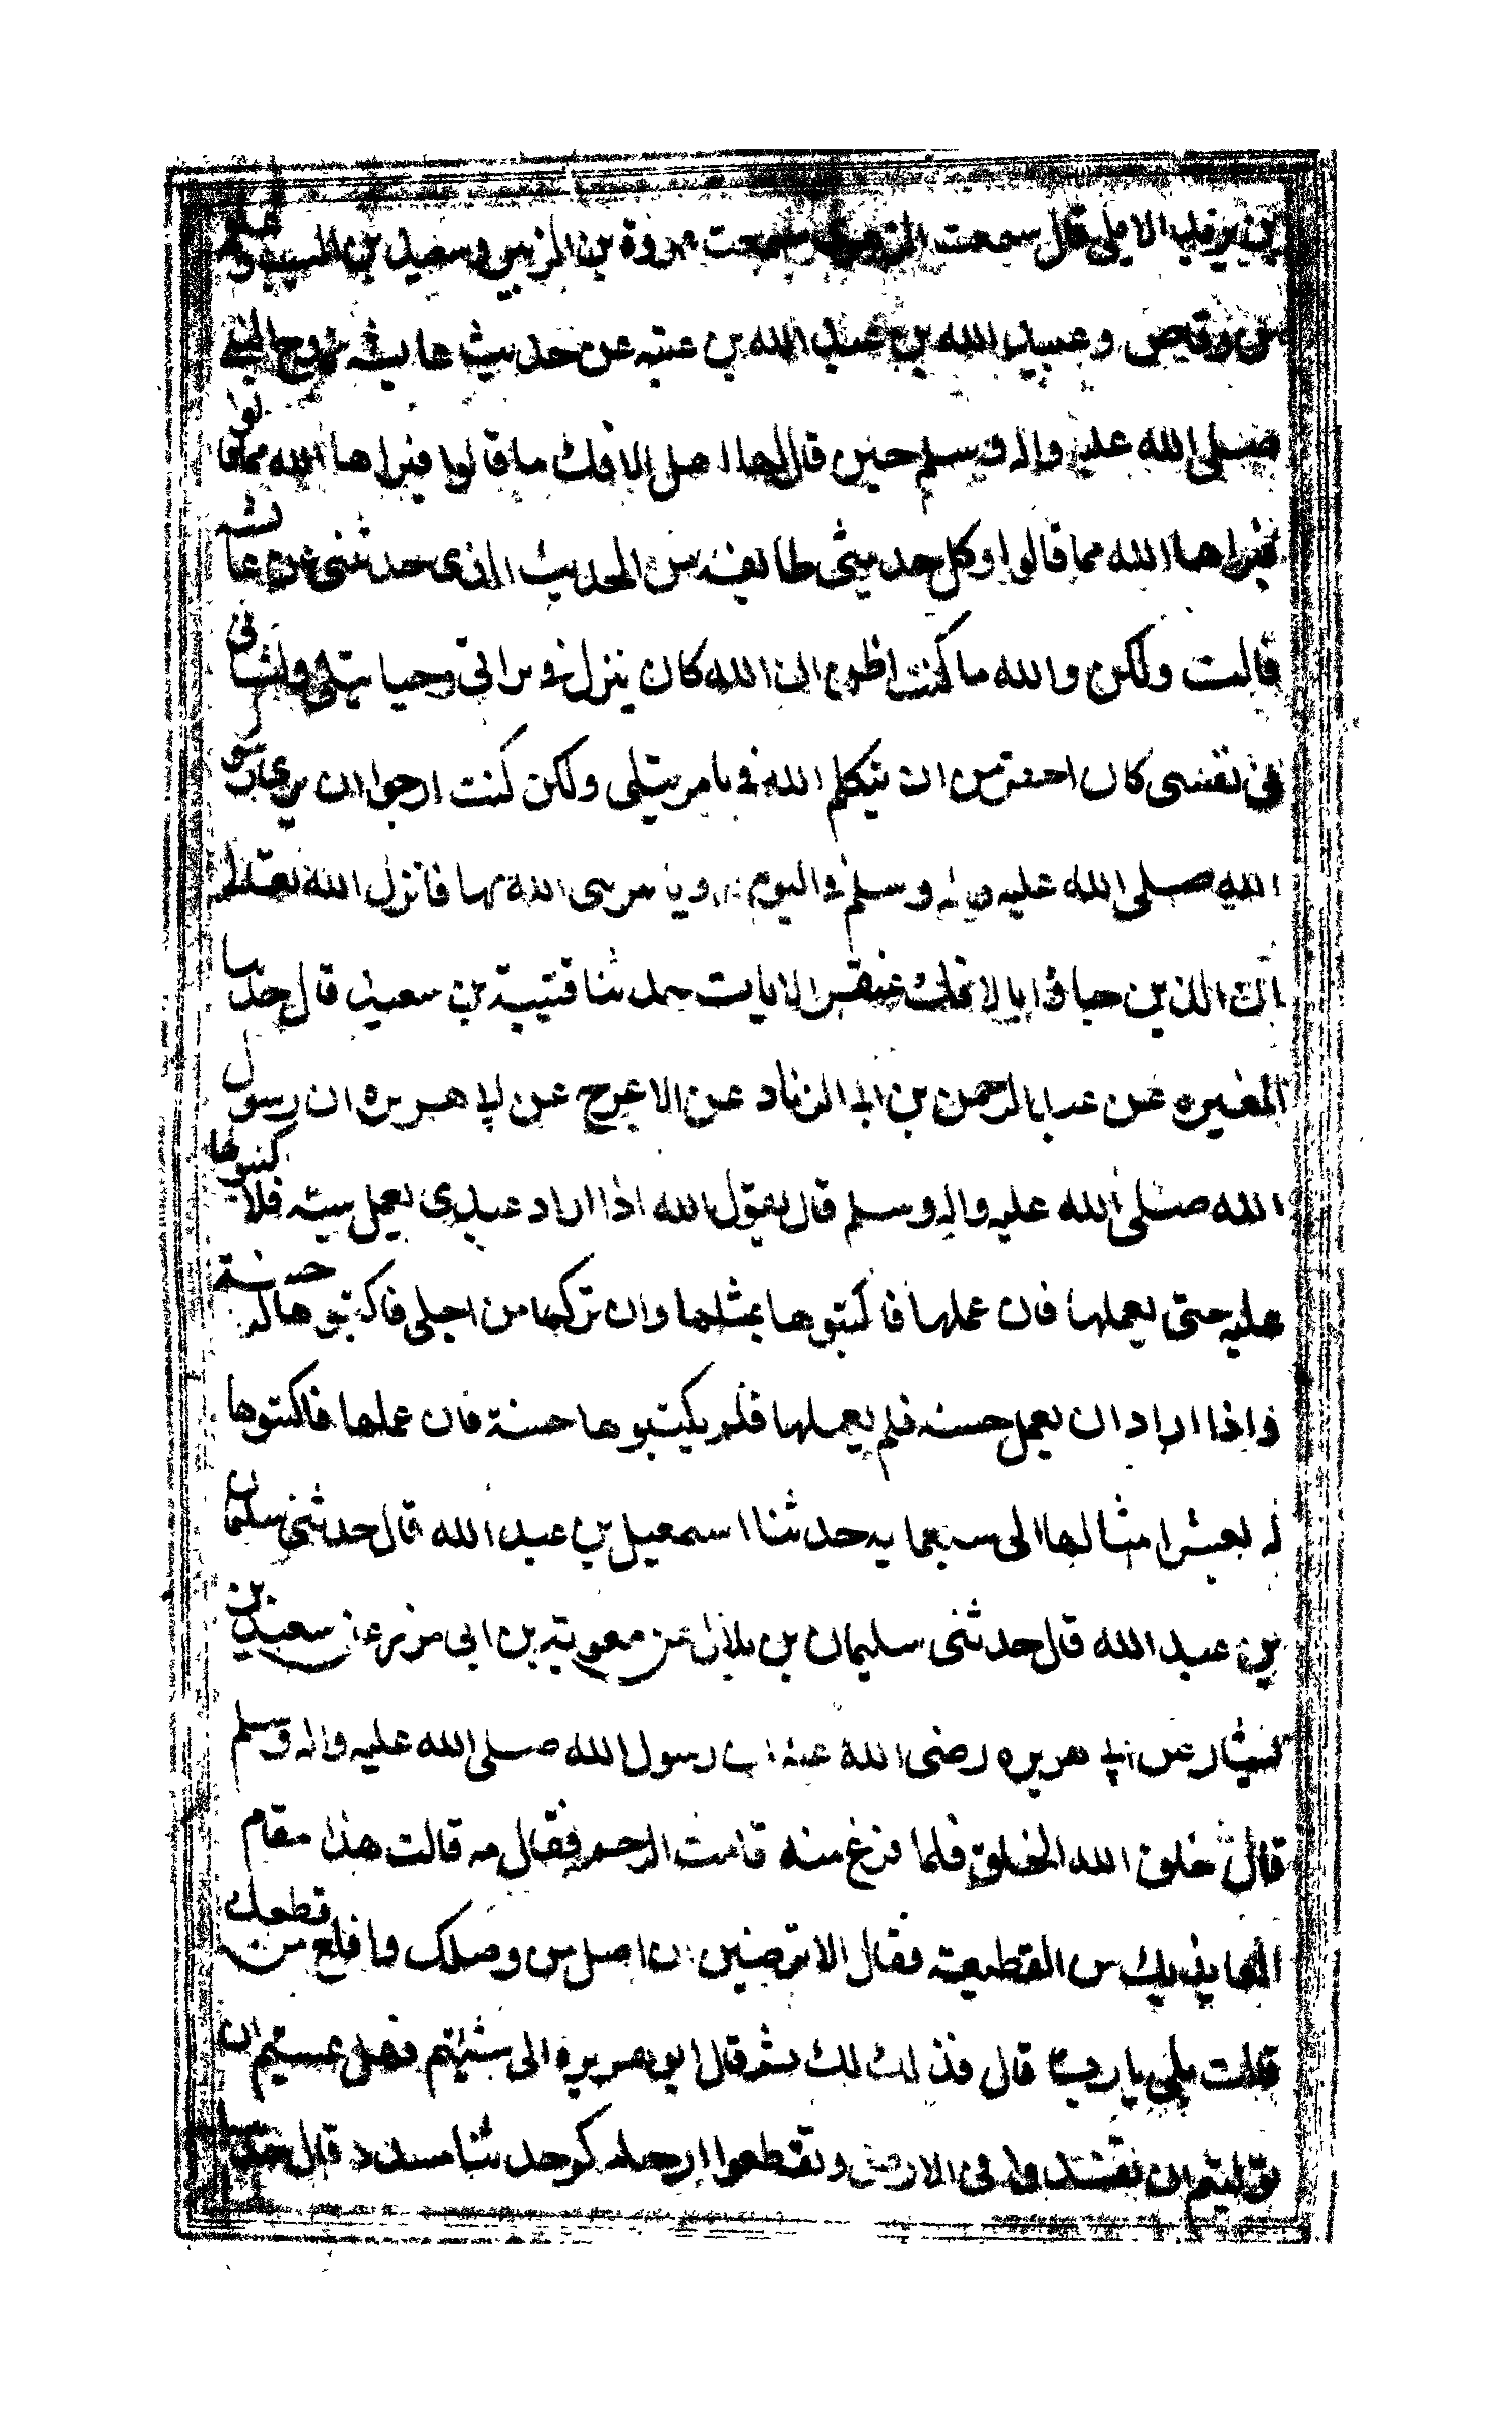 بن يزيد الايلى قال سمعت الزهرى سمعت عروة بن الزبير وسعيد بن المسيب وعلقمه
بن وقاص وعبيد الله بن عبد الله بن عتبه عن حديث عايشه زوج النبى
صلى الله عليه واله وسلم حين قال لها اهل الافك ما قالوا فبراها الله مما قالوا
فبراها الله مما قالوا وكل حديثى طايفه من الحديث الذى حدثنى عن عايشه
قالت ولكن والله ما كنت اظن ان الله كان ينزل فى براتى وحيا يتلى ولشانى
فى نفسى كان احقر من ان يتكلم الله فى بامر يتلى ولكن كنت ارجوا ان يرى رسول
الله صلى الله عليه واله وسلم فى اليوم رويا يبرى الله بها فانزل الله تعالى
ان الذين جاوا بالافك عشر الايات حدثنا قتيبة بن سعيد قال حدثنا
المغيره عن عبد الرحمن بن ابى الزناد عن الاعرج عن ابى هريره ان رسول
الله صلى الله عليه واله وسلم قال يقول الله اذا اراد عبدى يعمل سيئه فلا تكتبوها
عليه حتى يعملها فان عملها فاكتبوها بمثلها وان تركها من اجلى فاكتبوها له حسنة
واذا اراد ان يعمل حسنه فلم يعملها فلم يكتبوها حسنة فان عملها فاكتبوها
له بعشر امثالها الى سبعمايه حدثنا اسمعيل بن عبد الله قال حدثنى سليمان
بن عبد الله قال حدثنى سليمان بن بلال عن معوية بن ابى مزرد عن سعيد بن
يسار عن ابى هريره رضى الله عنه ان رسول الله صلى الله عليه واله وسلم
قال خلق الله الخلق فلما فرغ منه قامت الرحم فقال مه قالت هذا مقام
العايذ بك من القطيعة فقال الا ترضين ان اصل من وصلك واقطع من قطعك
قالت بلى يا رب قال فذلك لك ثم قال ابو هريره الى شئتم فهل عسيتم ان
توليتم ان تفسدوا فى الارض وتقطعوا ارحامكم حدثنا مسدد قال حدثنا